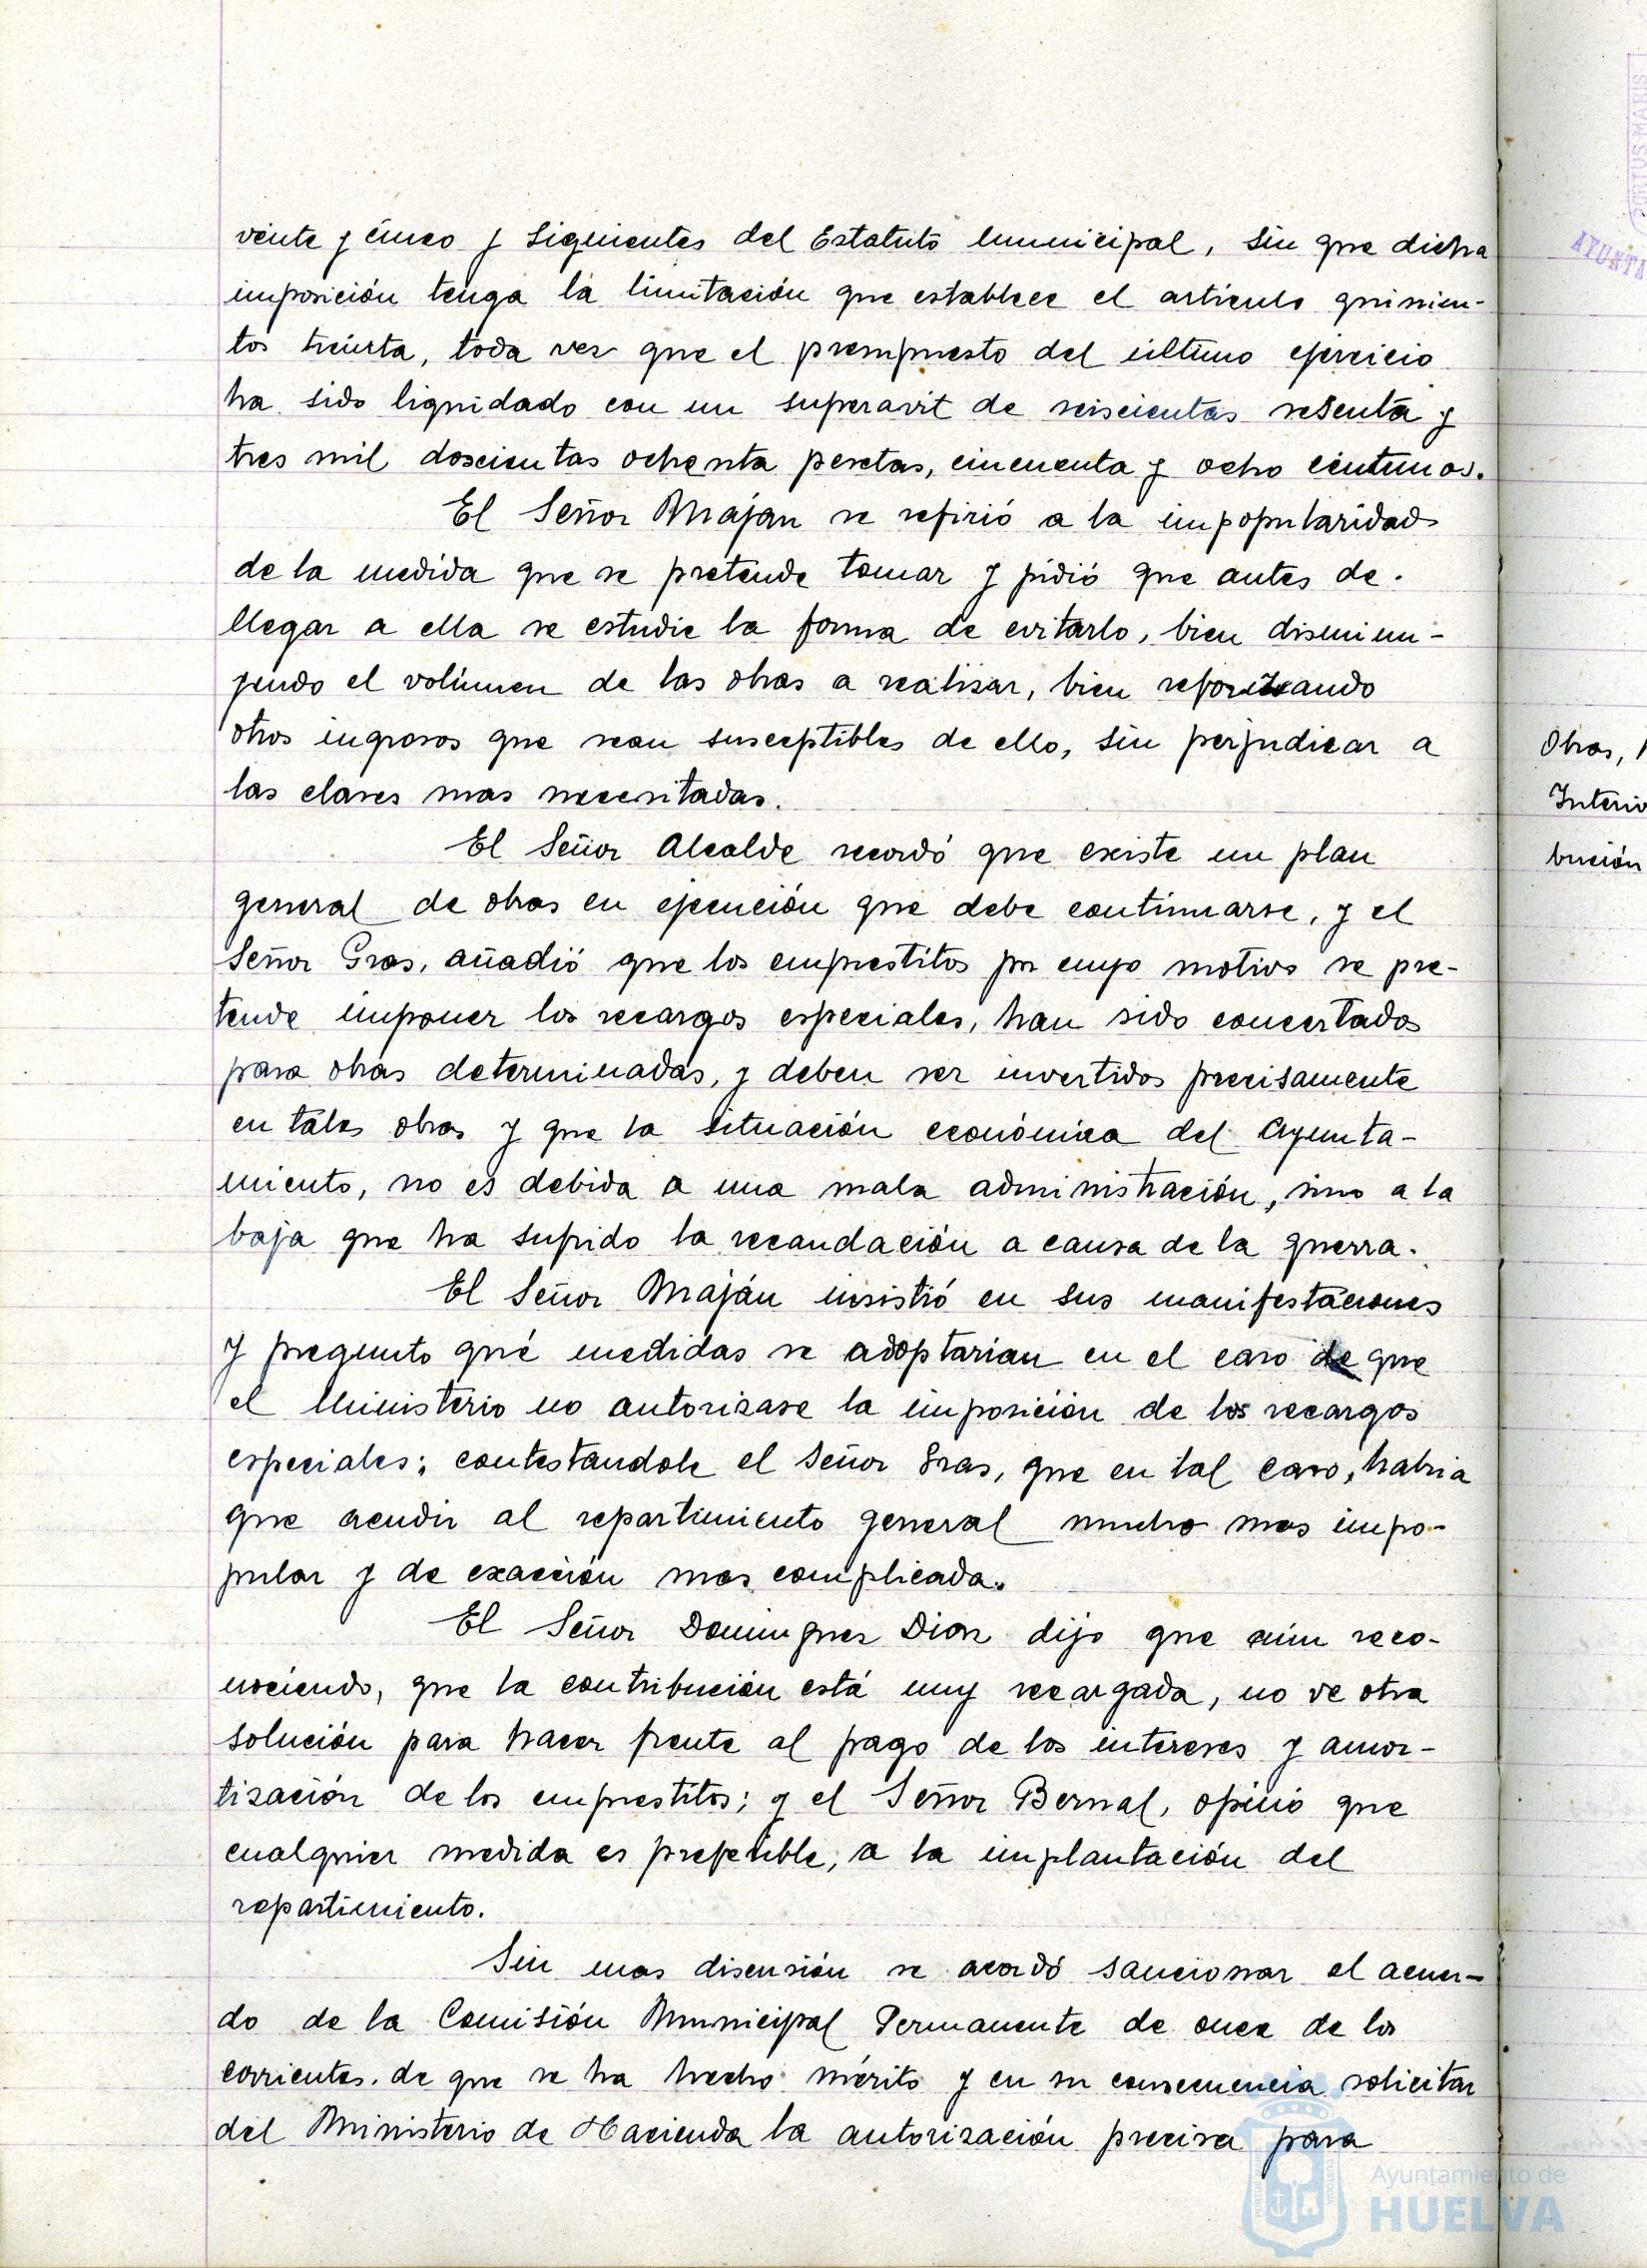 veinte y cinco y siguientes del Estatuto Municipal, sin que dicha
imposición tenga la limitación que establece el artículo quinien-
tos treinta, toda vez que el presupuesto del último ejercicio
ha sido liquidado con un superavit de seiscientas sesenta y
tres mil doscientas ochenta pesetas, cincuenta y ocho céntimos.
El Señor Maján se refirió a la impopularidad
de la medida que se pretende tomar y pidió que antes de
llegar a ella se estudie la forma de evitarlo, bien disminu-
yendo el volúmen de las obras a realizar, bien reforzando
otros ingresos que sean susceptibles de ello, sin perjudicar a
las clases mas necesitadas.
El Señor Alcalde recordó que existe un plan
general de obras en ejecución que debe continuarse, y el
Señor Gras, añadió que los emprestitos por cuyo motivo se pre-
tende imponer los recargos especiales, han sido concertados
para obras determinadas, y deben ser invertidos precisamente
en tales obras y que la situación económica del Ayunta-
miento, no es debida a una mala administración, sino a la
baja que ha sufrido la recaudación a causa de la guerra.
El Señor Maján insistió en sus manifestaciones
y pregunto qué medidas se adoptarian en el caso de que
el Ministerio no autorizase la imposición de los recargos
especiales; contestandole el Señor Gras, que en tal caso, habria
que acudir al repartimiento general mucho mas impo-
pular y de exacción mas complicada.
El Señor Dominguez Diaz dijo que aún reco-
nociendo, que la contribución está muy recargada, no ve otra
solución para hacer frente al pago de los intereses y amor-
tización de los emprestitos; y el Señor Bernal, opinó que
cualquier medida es preferible, a la implantación del
repartimiento.
Sin mas discusión se acordó sancionar el acuer-
do de la Comisión Municipal Permanente de once de los
corrientes. de que se ha hecho mérito y en su consecuencia solicitar
del Ministerio de Hacienda la autorización precisa para
Obras,
Interio
bución
AYUNTA
Ayuntamiento de
HUELVA